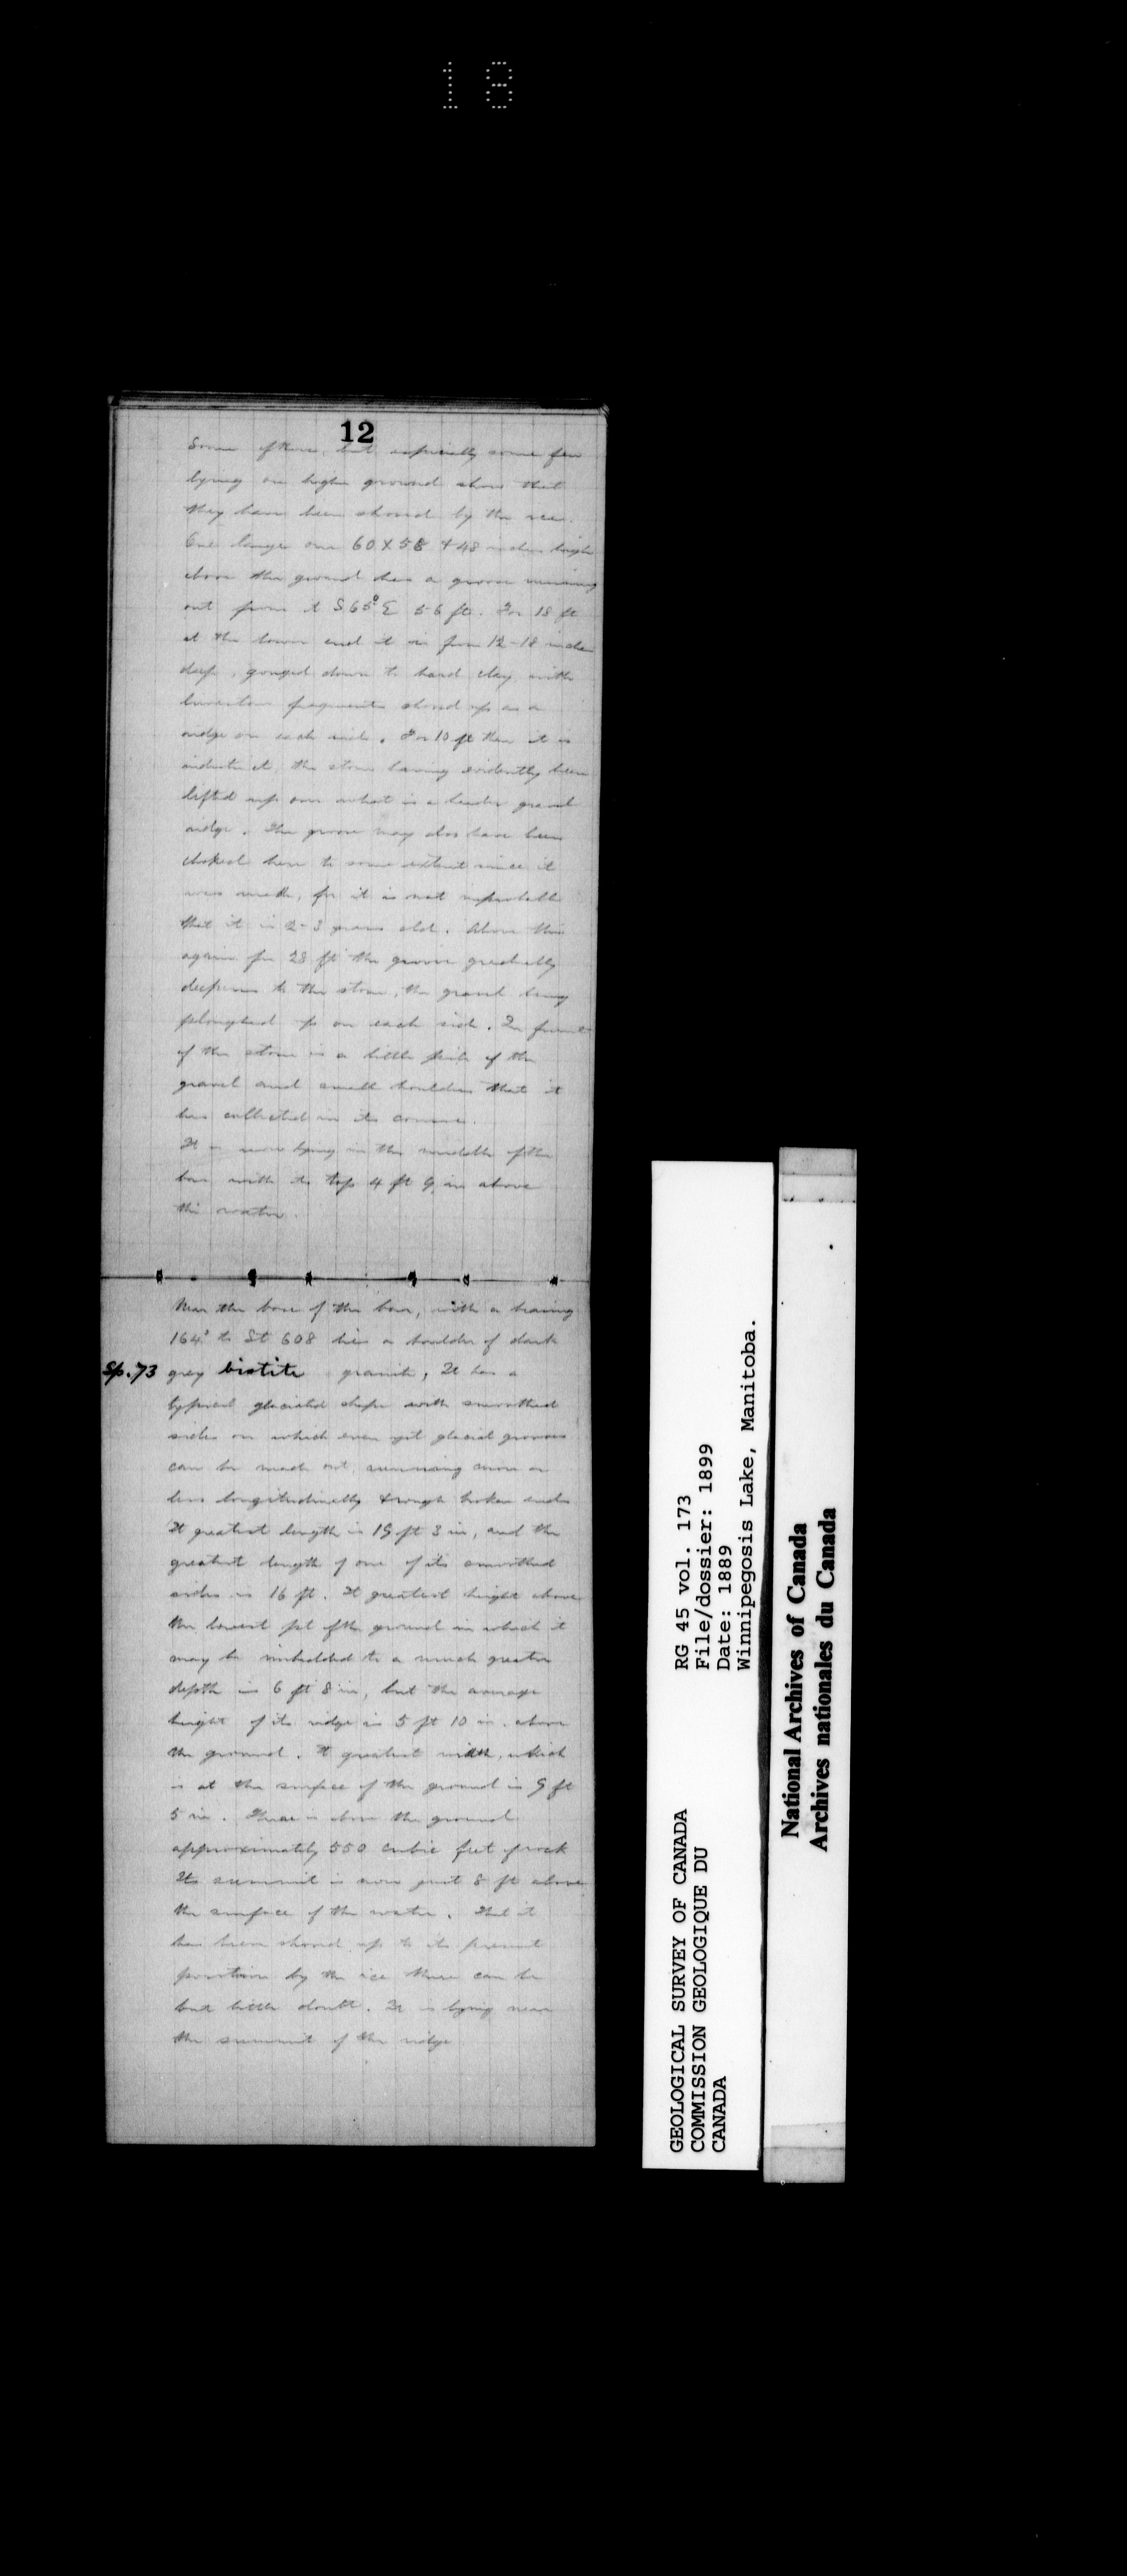 18
12
Some of them, but especially some few
lying on higher ground show that
they have been shoved by the ice.
One large one 60 X 58 + 48 inches high
above the ground has a groove running
out from it S65°E 56 ft. For 18 ft
at the lower end it is from 12-18 inches
deep, gouged down to hard clay with
limestone fragments shoved up as a
ridge on each side. For 10 ft then it is
indistinct, the stone having evidently been
lifted up over what is a gravel
ridge. The groove may also have been
choked here to some extent since it
was made, for it is not improbable
that it is 2-3 years old. Above this
again for 28 ft the groove gradually
deepens to the stone, the gravel being
ploughed up on each side. In front
of the stone is a little pile of the
gravel and small boulders that it
has collected in its course.
It is now lying in the middle of the
bar with its top 4 ft 9 in above
the water.
Near the base of the bar, with a bearing
164° to St 608 lies a boulder of dark
Sp. 73 grey biotite granite, It has a
typical glaciated shape with smoothed
sides on which even yet glacial grooves
can be made out running more or
less longitudinally & rough broken ends
It greatest length is 19 ft 3 in, and the
greatest length of one of its smoothed
sides is 16 ft. It greatest height above
the lowest pt of the ground in which it
may be imbedded to a much greater
depth is 6 ft 8 in, but the average
height of its ridge is 5 ft 10 in. above
the ground. It greatest width, which
is at the surface of the ground is 9 ft
5 in. There is above the ground
approximately 550 cubic feet of rock
Its summit is now just 8 ft above
the surface of the water. That it
has been shoved up to its present
position by the ice there can be
but little doubt. It is lying near
the summit of the ridge
GEOLOGICAL SURVEY OF CANADA
COMMISSION GEOLOGIQUE DU
CANADA
RG 45 vol. 173
File/dossier: 1899
Date: 1889
Winnipegosis Lake, Manitoba.
National Archives of Canada
Archives nationales du Canada